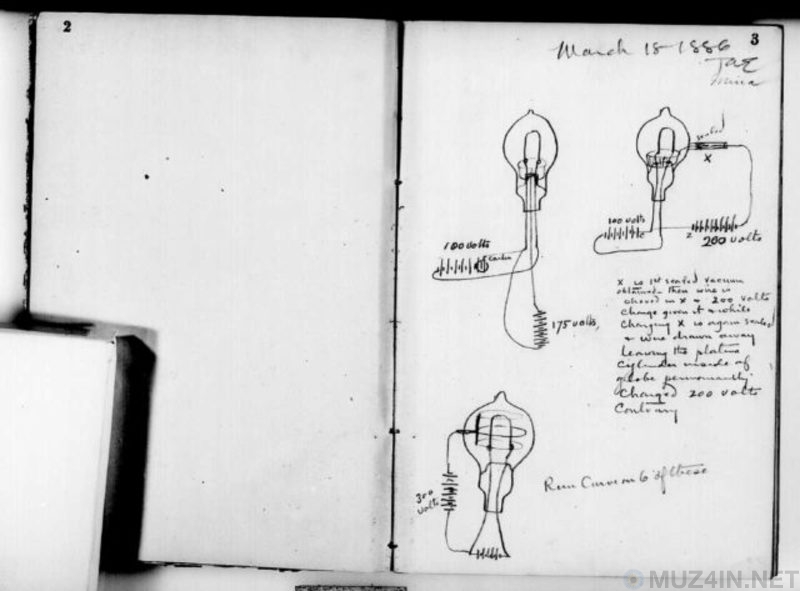 2
3
March 18-1886
TAE
Mina
sealed
X
100 volts
100 volts
Z
200 volts
175 volts,
X is 1st sealed vacuum
obtained then wire is
shoved in X & 200 volts
Charge given it & while
Charging X is again sealed
& wire drawn away
Leaving the platina
Cylinder inside of
globe permanently
Charged 200 volts
Contrary
300
volts
Run Curve on 6 of these
MUZ4IN.NET